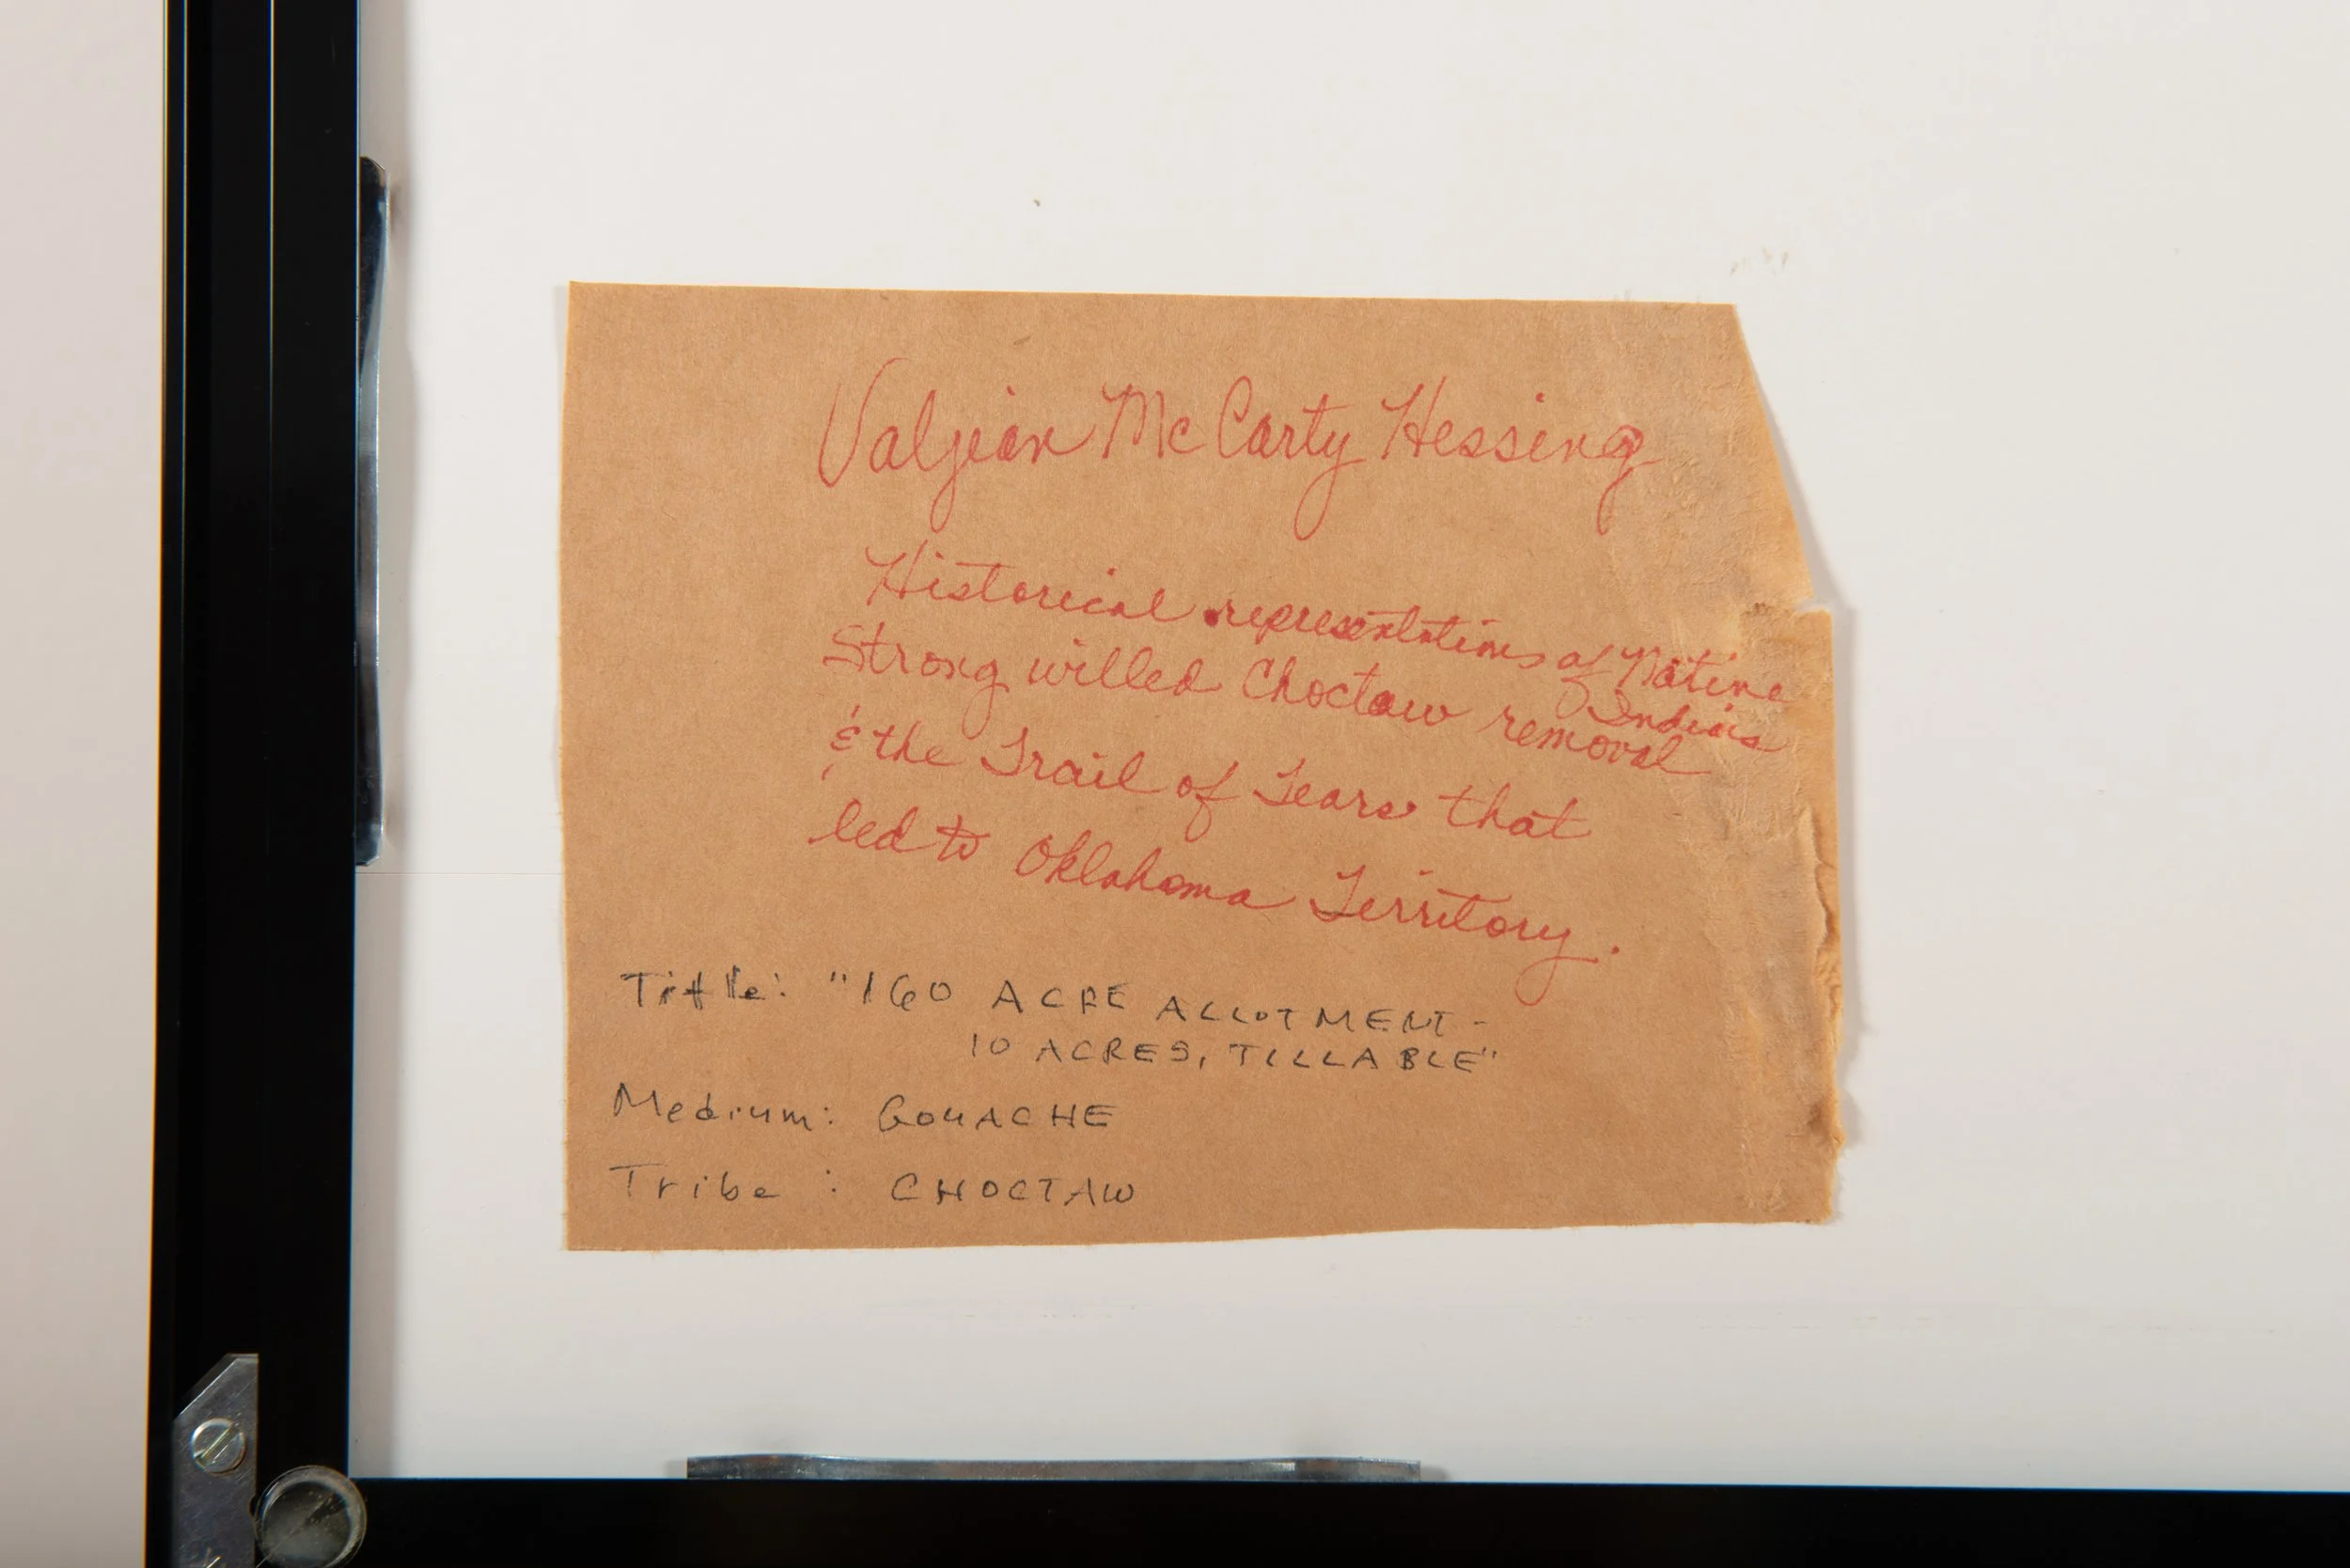 Valjean McCarty Hessing
Historical representations of Native
Indians
Strong willed Choctaw removal
& the Trail of Tears that
led to Oklahoma Territory.
Title: "160 ACRE ALLOTMENT-
10 ACRES, TILLABLE"
Medium: GOUACHE
Tribe : CHOCTAW